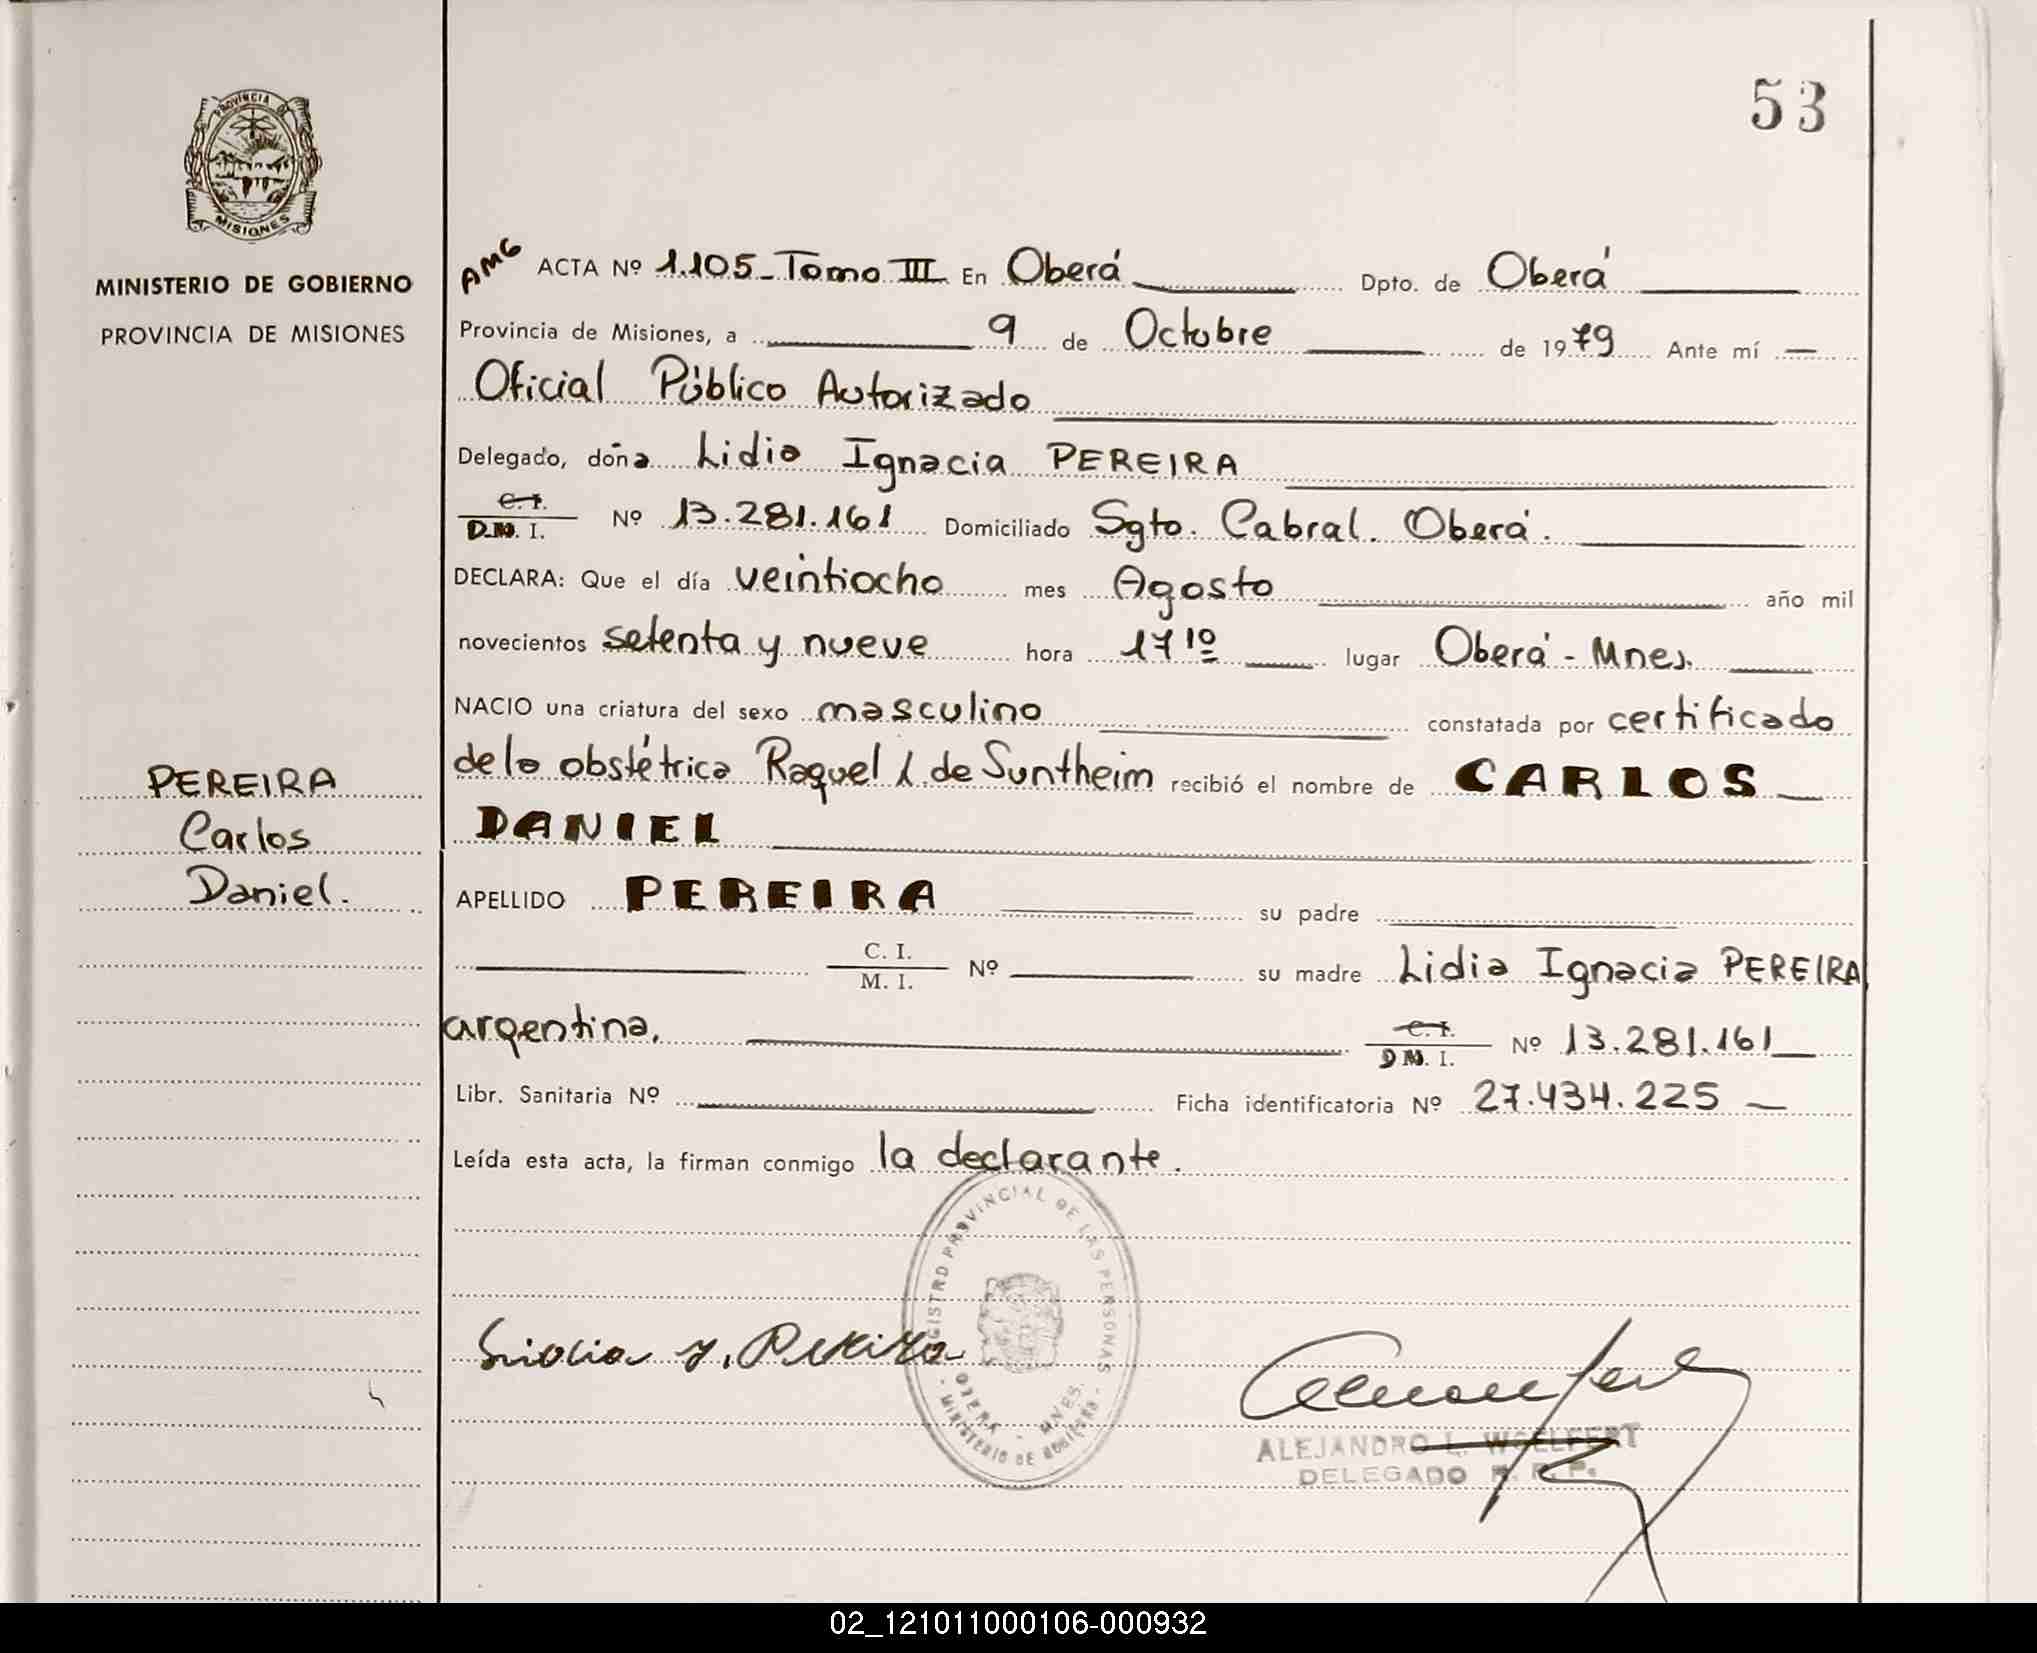 53
PROVINCIA DE
MISIONES
MINISTERIO DE GOBIERNO
PROVINCIA DE MISIONES
PEREIRA
Carlos
Daniel.
AMG ACTA Nº 1.105 - Tomo III En Oberá Dpto. de Oberá
Provincia de Misiones, a 9 de Octubre de 1979 Ante mí
Oficial Público Autorizado
Delegado, doña Lidia Ignacia PEREIRA
C. I.
D.N. I. Nº 13.281.161 Domiciliado Sgto. Cabral. Oberá.
DECLARA: Que el día veintiocho mes Agosto año mil
novecientos setenta y nueve hora 17 10 lugar Oberá - Mnes.
NACIO una criatura del sexo masculino constatada por certificado
de la obstétrica Raquel L. de Suntheim recibió el nombre de CARLOS
DANIEL
APELLIDO PEREIRA su padre
C. I.
M. I. Nº su madre Lidia Ignacia PEREIRA
argentina. C. I.
D N. I. Nº 13.281.161
Libr. Sanitaria Nº Ficha identificatoria Nº 27.434.225
Leída esta acta, la firman conmigo la declarante.
REGISTRO PROVINCIAL DE LAS PERSONAS
OBERA - MNES.
- MINISTERIO DE GOBIERNO -
ALEJANDRO L. WOELFERT
DELEGADO R. P. P.
02_121011000106-000932